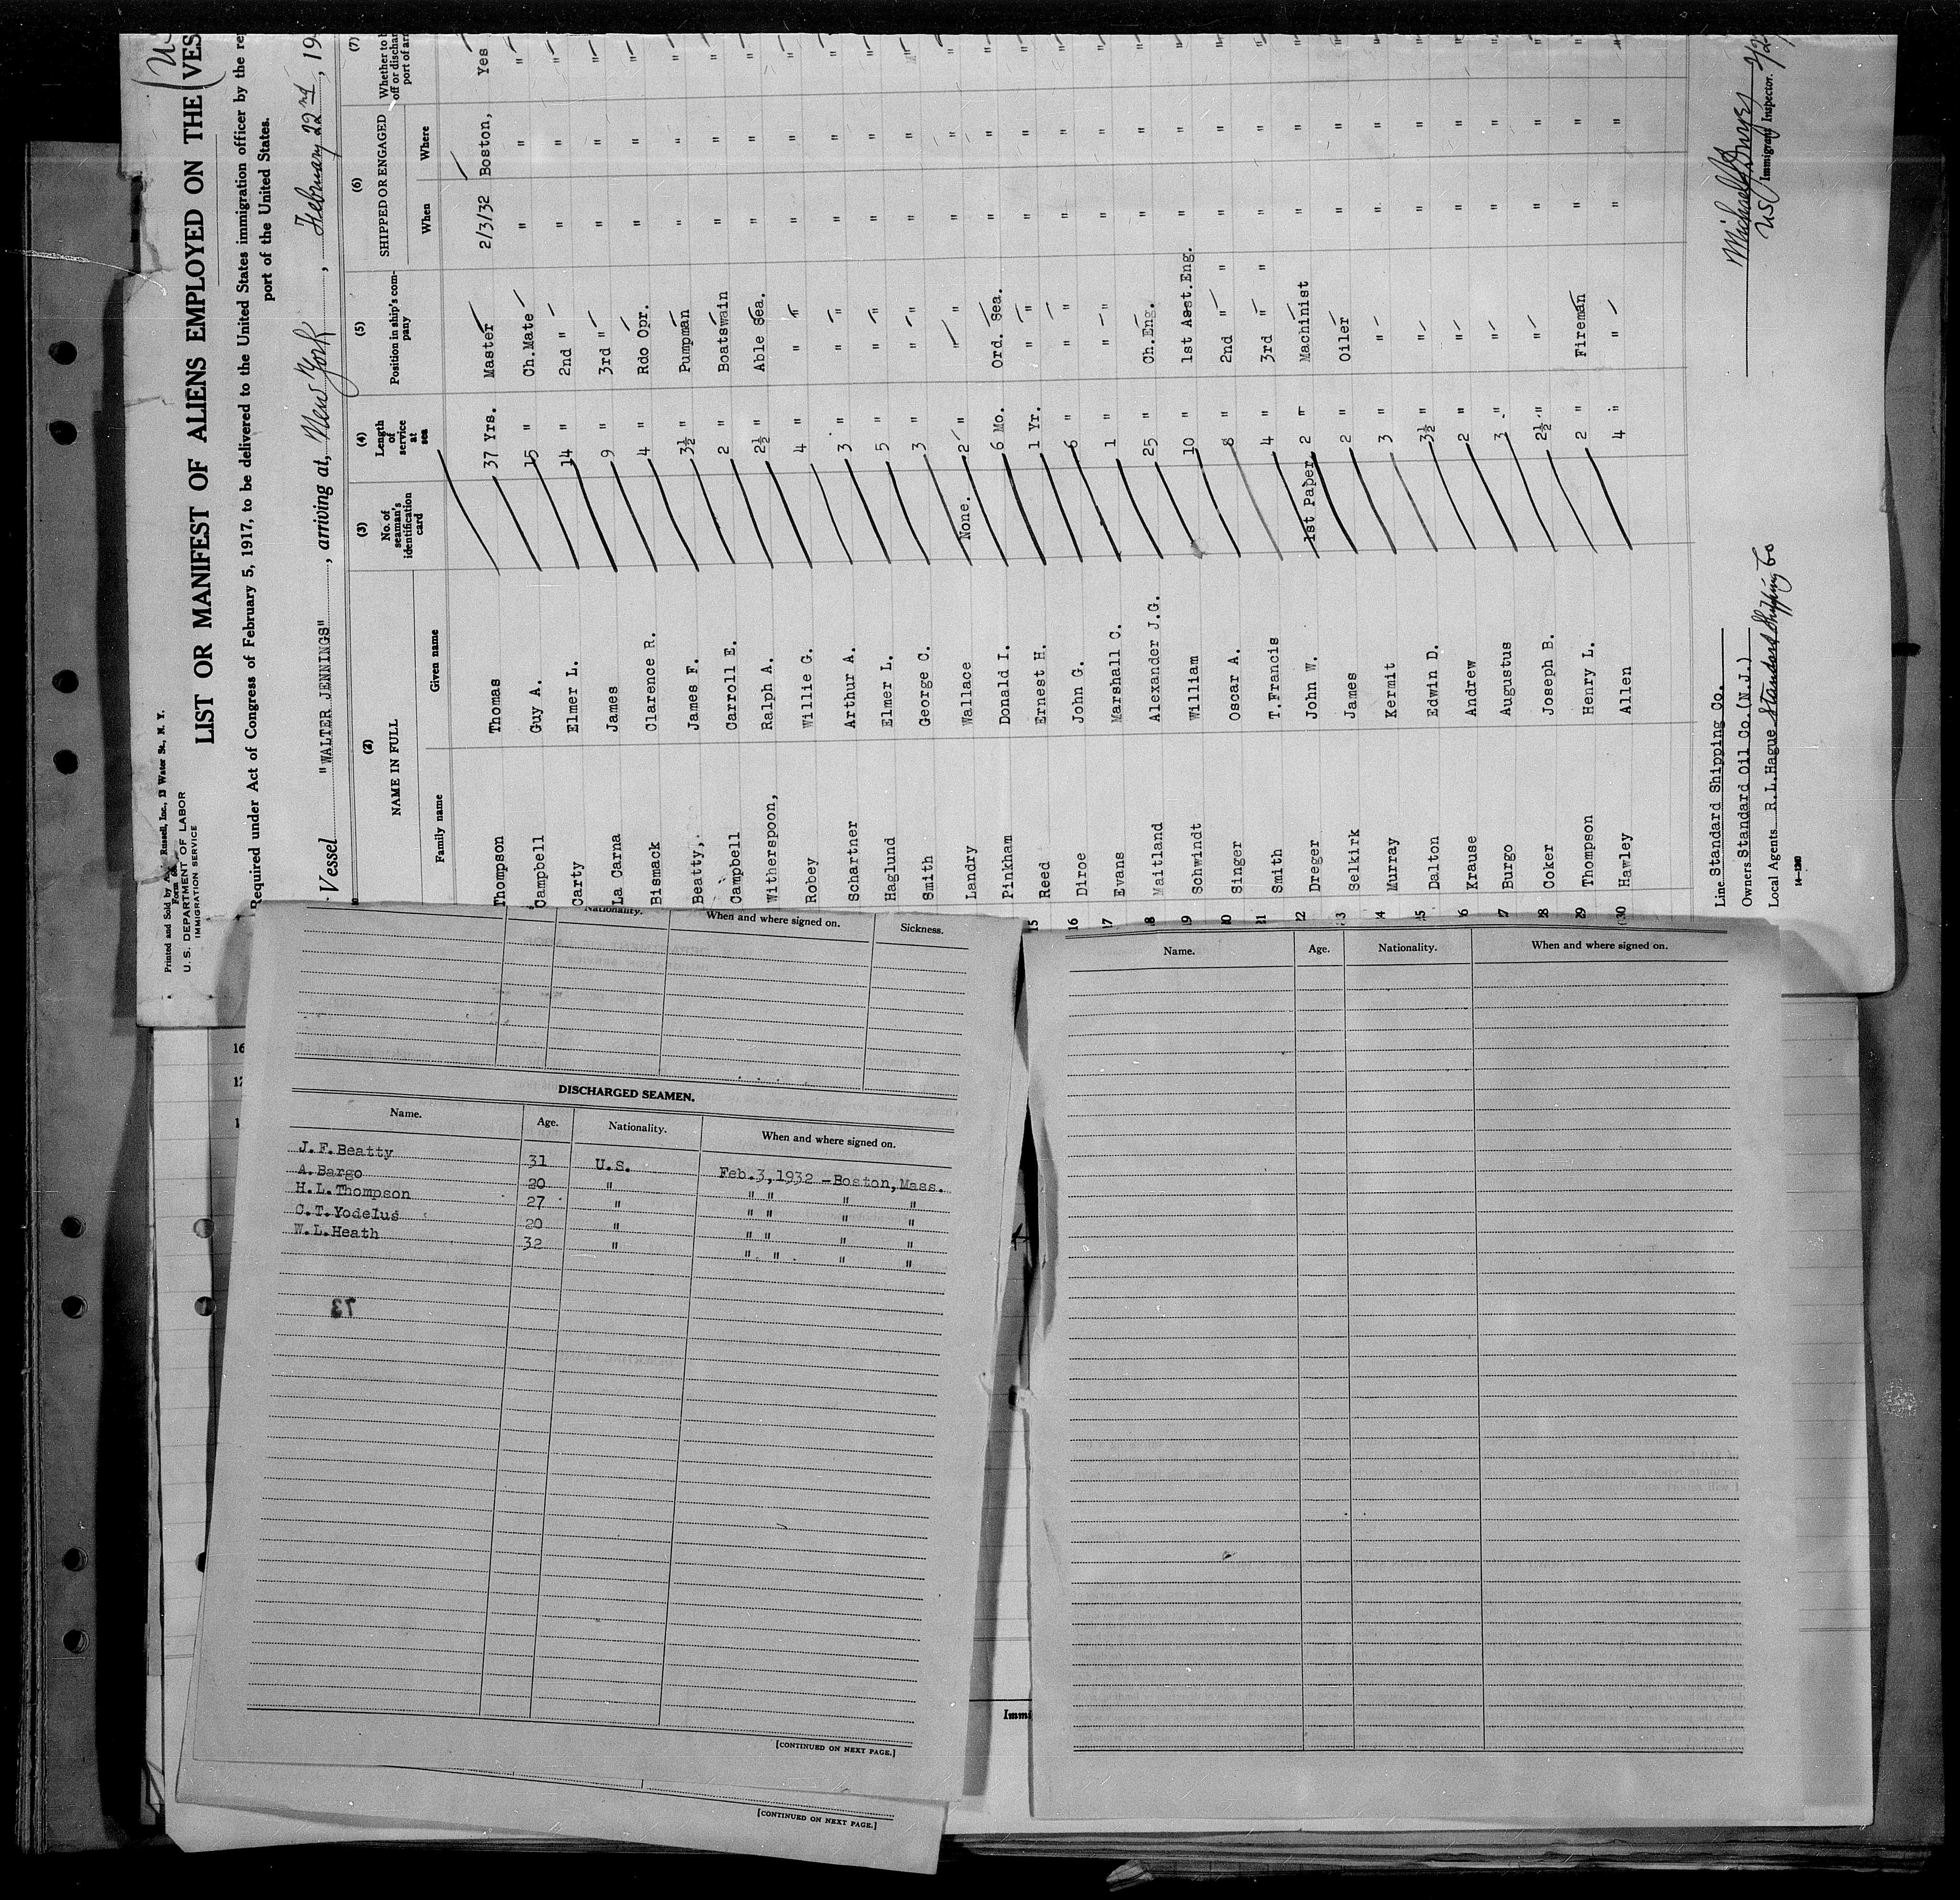 Printed and Sold by Russell, Inc., 13 Water St., N. Y.
Form
U. S. DEPARTMENT OF LABOR
IMMIGRATION SERVICE
LIST OR MANIFEST OF ALIENS EMPLOYED ON THE VES
Required under Act of Congress of February 5, 1917, to be delivered to the United States immigration officer by the re
port of the United States.
Vessel "WALTER JENNINGS", arriving at, New York, February 22nd, 19
(2) (3) (4) (5) (6) (7)
NAME IN FULL No. of seaman's identification card Length of service at sea Position in ship's company SHIPPED OR ENGAGED Whether to b off or dischar port of ar
Family name Given name When Where
Thompson Thomas 37 Yrs. Master 2/3/32 Boston, Yes
Campbell Guy A. 15 " Ch.Mate " " "
Carty Elmer L. 14 " 2nd " " " "
La Carna James 9 " 3rd " " " "
Bismack Clarence R. 4 " Rdo Opr. " " "
Beatty, James F. 3½ " Pumpman " " "
Campbell Carroll E. 2 " Boatswain " " "
Witherspoon, Ralph A. 2½ " Able Sea. " " "
Robey Willie G. 4 " " " " "
Schartner Arthur A. 3 " " " " "
Haglund Elmer L. 5 " " " " "
Smith George C. 3 " " " " "
Landry Wallace None. 2 " " " " "
Pinkham Donald I. 6 Mo. Ord. Sea. " " "
15 Reed Ernest H. 1 Yr. " " " " "
16 Diroe John G. 6 " " " " " "
17 Evans Marshall C. 1 " " " " " "
18 Maitland Alexander J.G. 25 " Ch.Eng. " " "
19 Schwindt William 10 " 1st Asst.Eng. " " "
20 Singer Oscar A. 8 " 2nd " " " " "
21 Smith T.Francis 4 " 3rd " " " " "
22 Dreger John W. 1st Paper 2 " Machinist " " "
23 Selkirk James 2 " Oiler " " "
24 Murray Kermit 3 " " " " "
25 Dalton Edwin D. 3½ " " " " "
26 Krause Andrew 2 " " " " "
27 Burgo Augustus 3 " " " " "
28 Coker Joseph B. 2½ " " " " "
29 Thompson Henry L. 2 " Fireman " " "
30 Hawley Allen 4 " " " " "
Line Standard Shipping Co.
Owners Standard Oil Co.(N.J.)
Local Agents R.L.Hague Standard Shipping Co
Immigrant Inspector.
Nationality. When and where signed on. Sickness.
DISCHARGED SEAMEN.
Name. Age. Nationality. When and where signed on.
J.F.Beatty 31 U.S. Feb.3,1932 -Boston,Mass.
A.Bargo 20 " " " " "
H.L.Thompson 27 " " " " "
C.T.Yodelus 20 " " " " "
W.L.Heath 32 " " " " "
73
[CONTINUED ON NEXT PAGE.]
[CONTINUED ON NEXT PAGE.]
Name. Age. Nationality. When and where signed on.
16
17
1
Immi